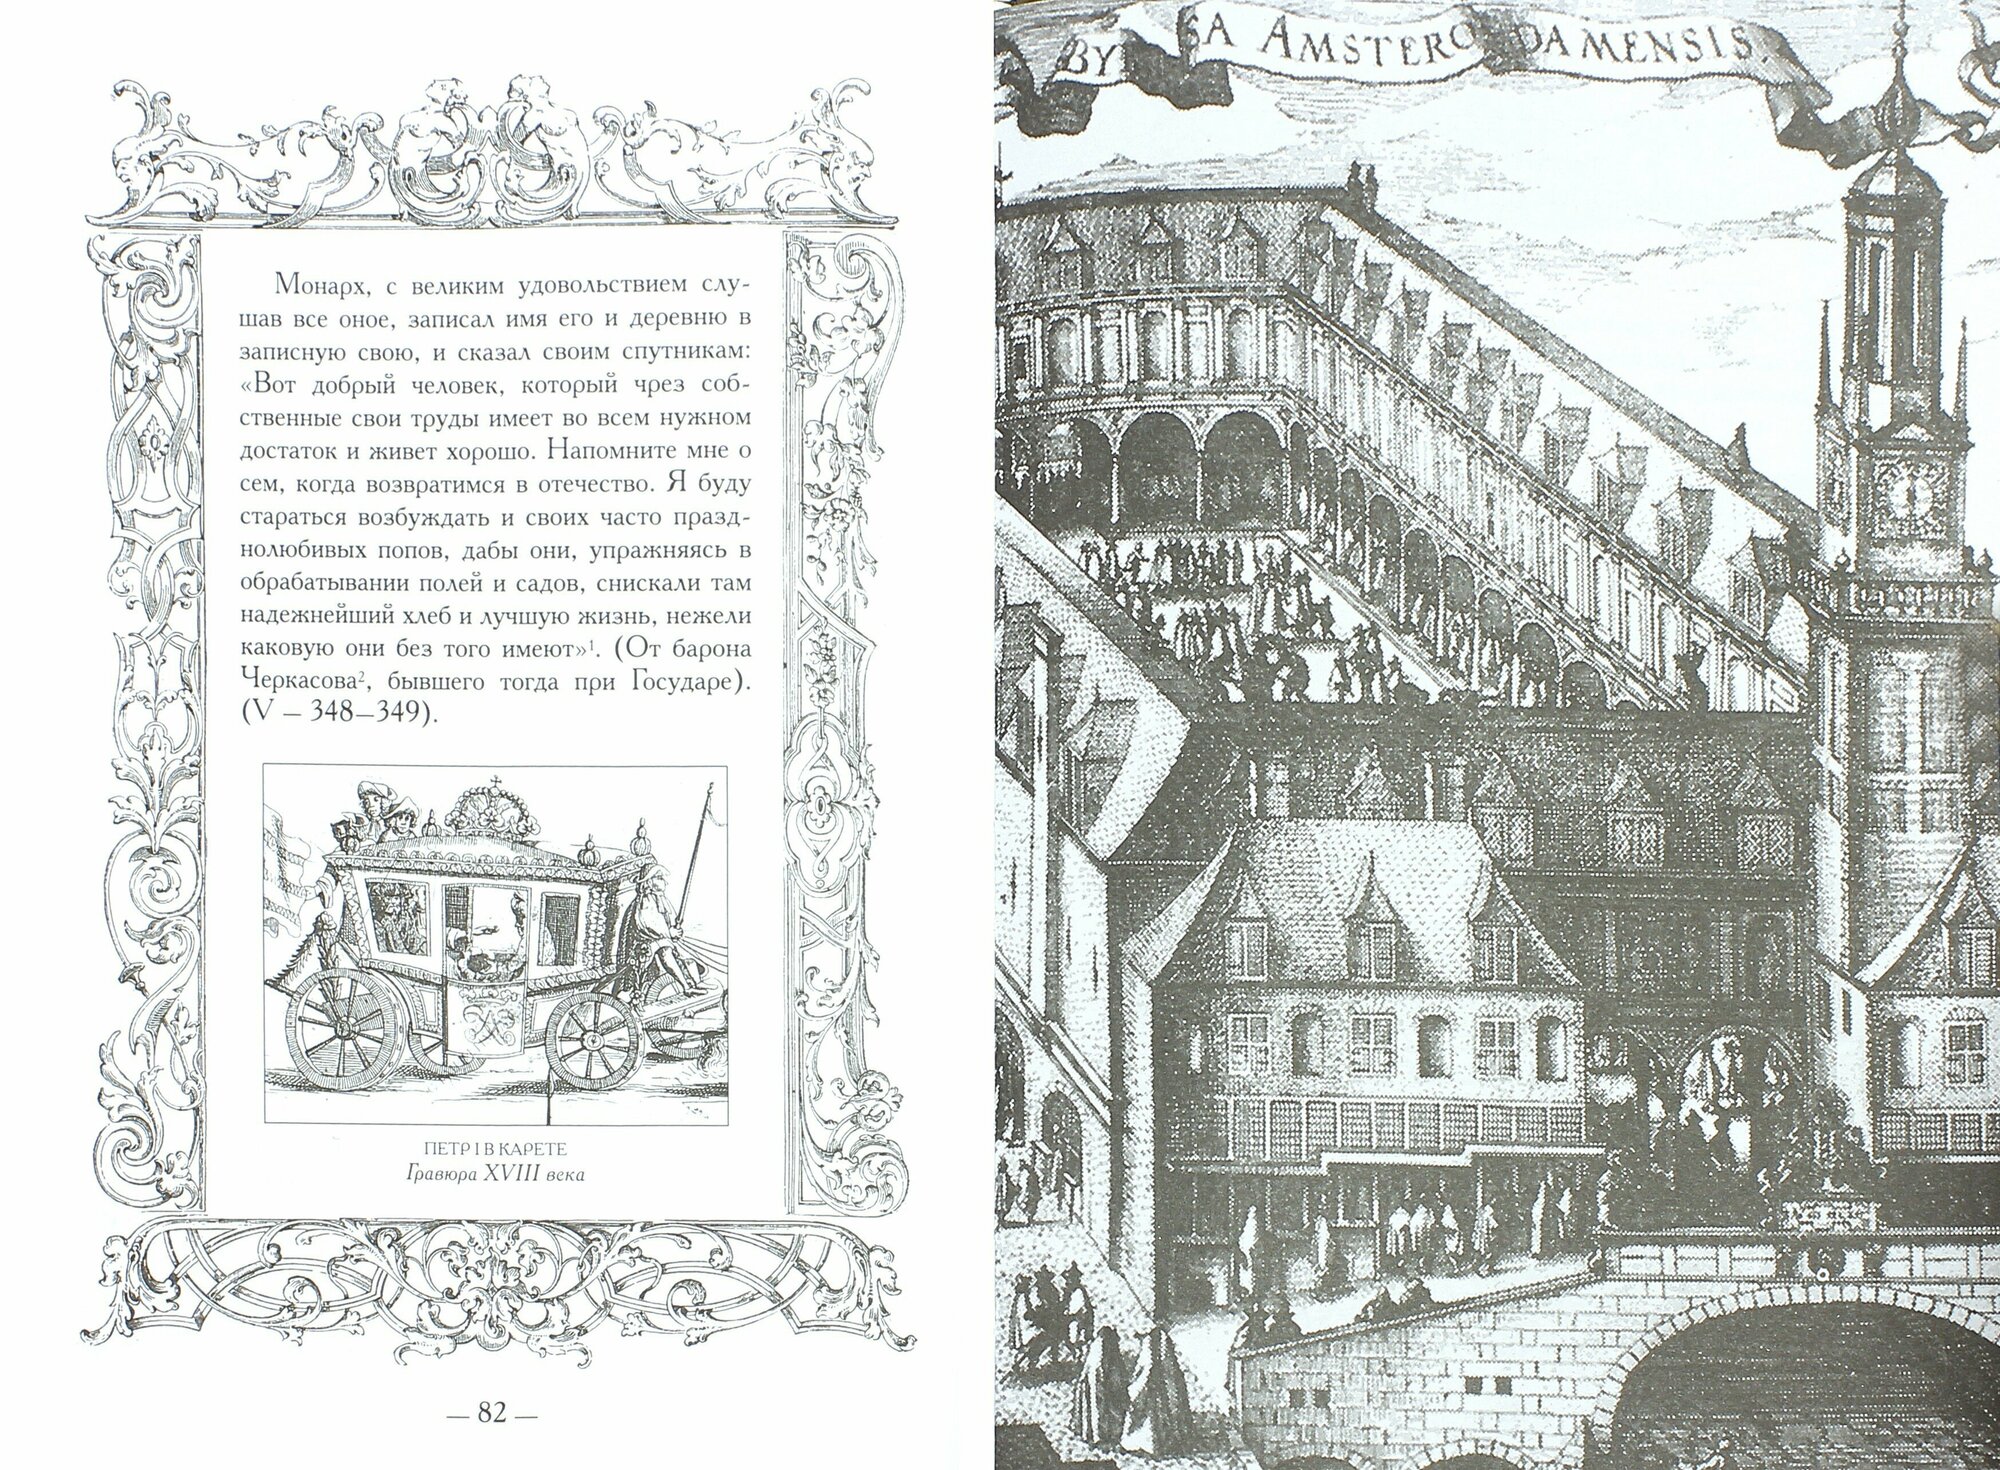 Монарх, с великим удовольствием слу-
шав все оное, записал имя его и деревню в
записную свою, и сказал своим спутникам:
«Вот добрый человек, который чрез соб-
ственные свои труды имеет во всем нужном
достаток и живет хорошо. Напомните мне о
сем, когда возвратимся в отечество. Я буду
стараться возбуждать и своих часто празд-
нолюбивых попов, дабы они, упражняясь в
обрабатывании полей и садов, снискали там
надежнейший хлеб и лучшую жизнь, нежели
каковую они без того имеют»¹. (От барона
Черкасова², бывшего тогда при Государе).
(V – 348–349).
ПЕТР I В КАРЕТЕ
Гравюра XVIII века
— 82 —
BY SA AMSTERODAMENSIS